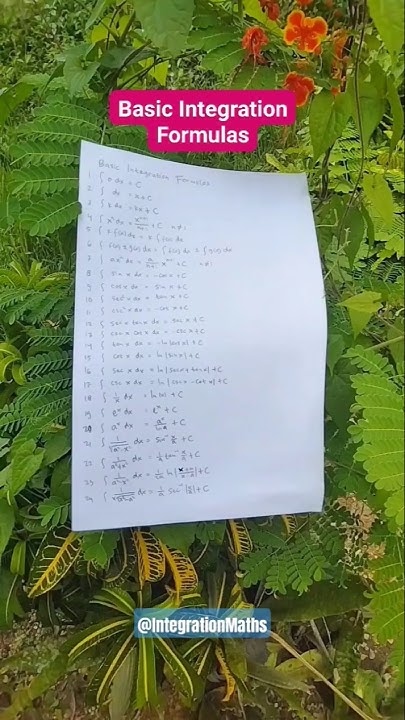 Basic Integration
Formulas
Basic Integration Formulas
1 ∫ 0 dx = C
2 ∫ dx = x + C
3 ∫ k dx = kx + C
4 ∫ xⁿ dx = xⁿ⁺¹/n+1 + C n ≠ -1
5 ∫ k f(x) dx = k ∫ f(x) dx
6 ∫ f(x) ± g(x) dx = ∫ f(x) dx ± ∫ g(x) dx
7 ∫ axⁿ dx = a/n+1 xⁿ⁺¹ + C
8 ∫ sin x dx = -cos x + C
9 ∫ cos x dx = sin x + C
10 ∫ sec² x dx = tan x + C
11 ∫ csc² x dx = -cot x + C
12 ∫ sec x tan x dx = sec x + C
13 ∫ csc x cot x dx = -csc x + C
14 ∫ tan x dx = -ln |cos x| + C
15 ∫ cot x dx = ln |sin x| + C
16 ∫ sec x dx = ln |sec x + tan x| + C
17 ∫ csc x dx = ln |csc x - cot x| + C
18 ∫ 1/x dx = ln |x| + C
19 ∫ eˣ dx = eˣ + C
20 ∫ aˣ dx = aˣ/ln a + C
21 ∫ 1/√a²-x² dx = sin⁻¹ x/a + C
22 ∫ 1/a²+x² dx = 1/a tan⁻¹ x/a + C
23 ∫ 1/a²-x² dx = 1/2a ln | | + C
24 ∫ dx = 1/a | | + C
@IntegrationMaths